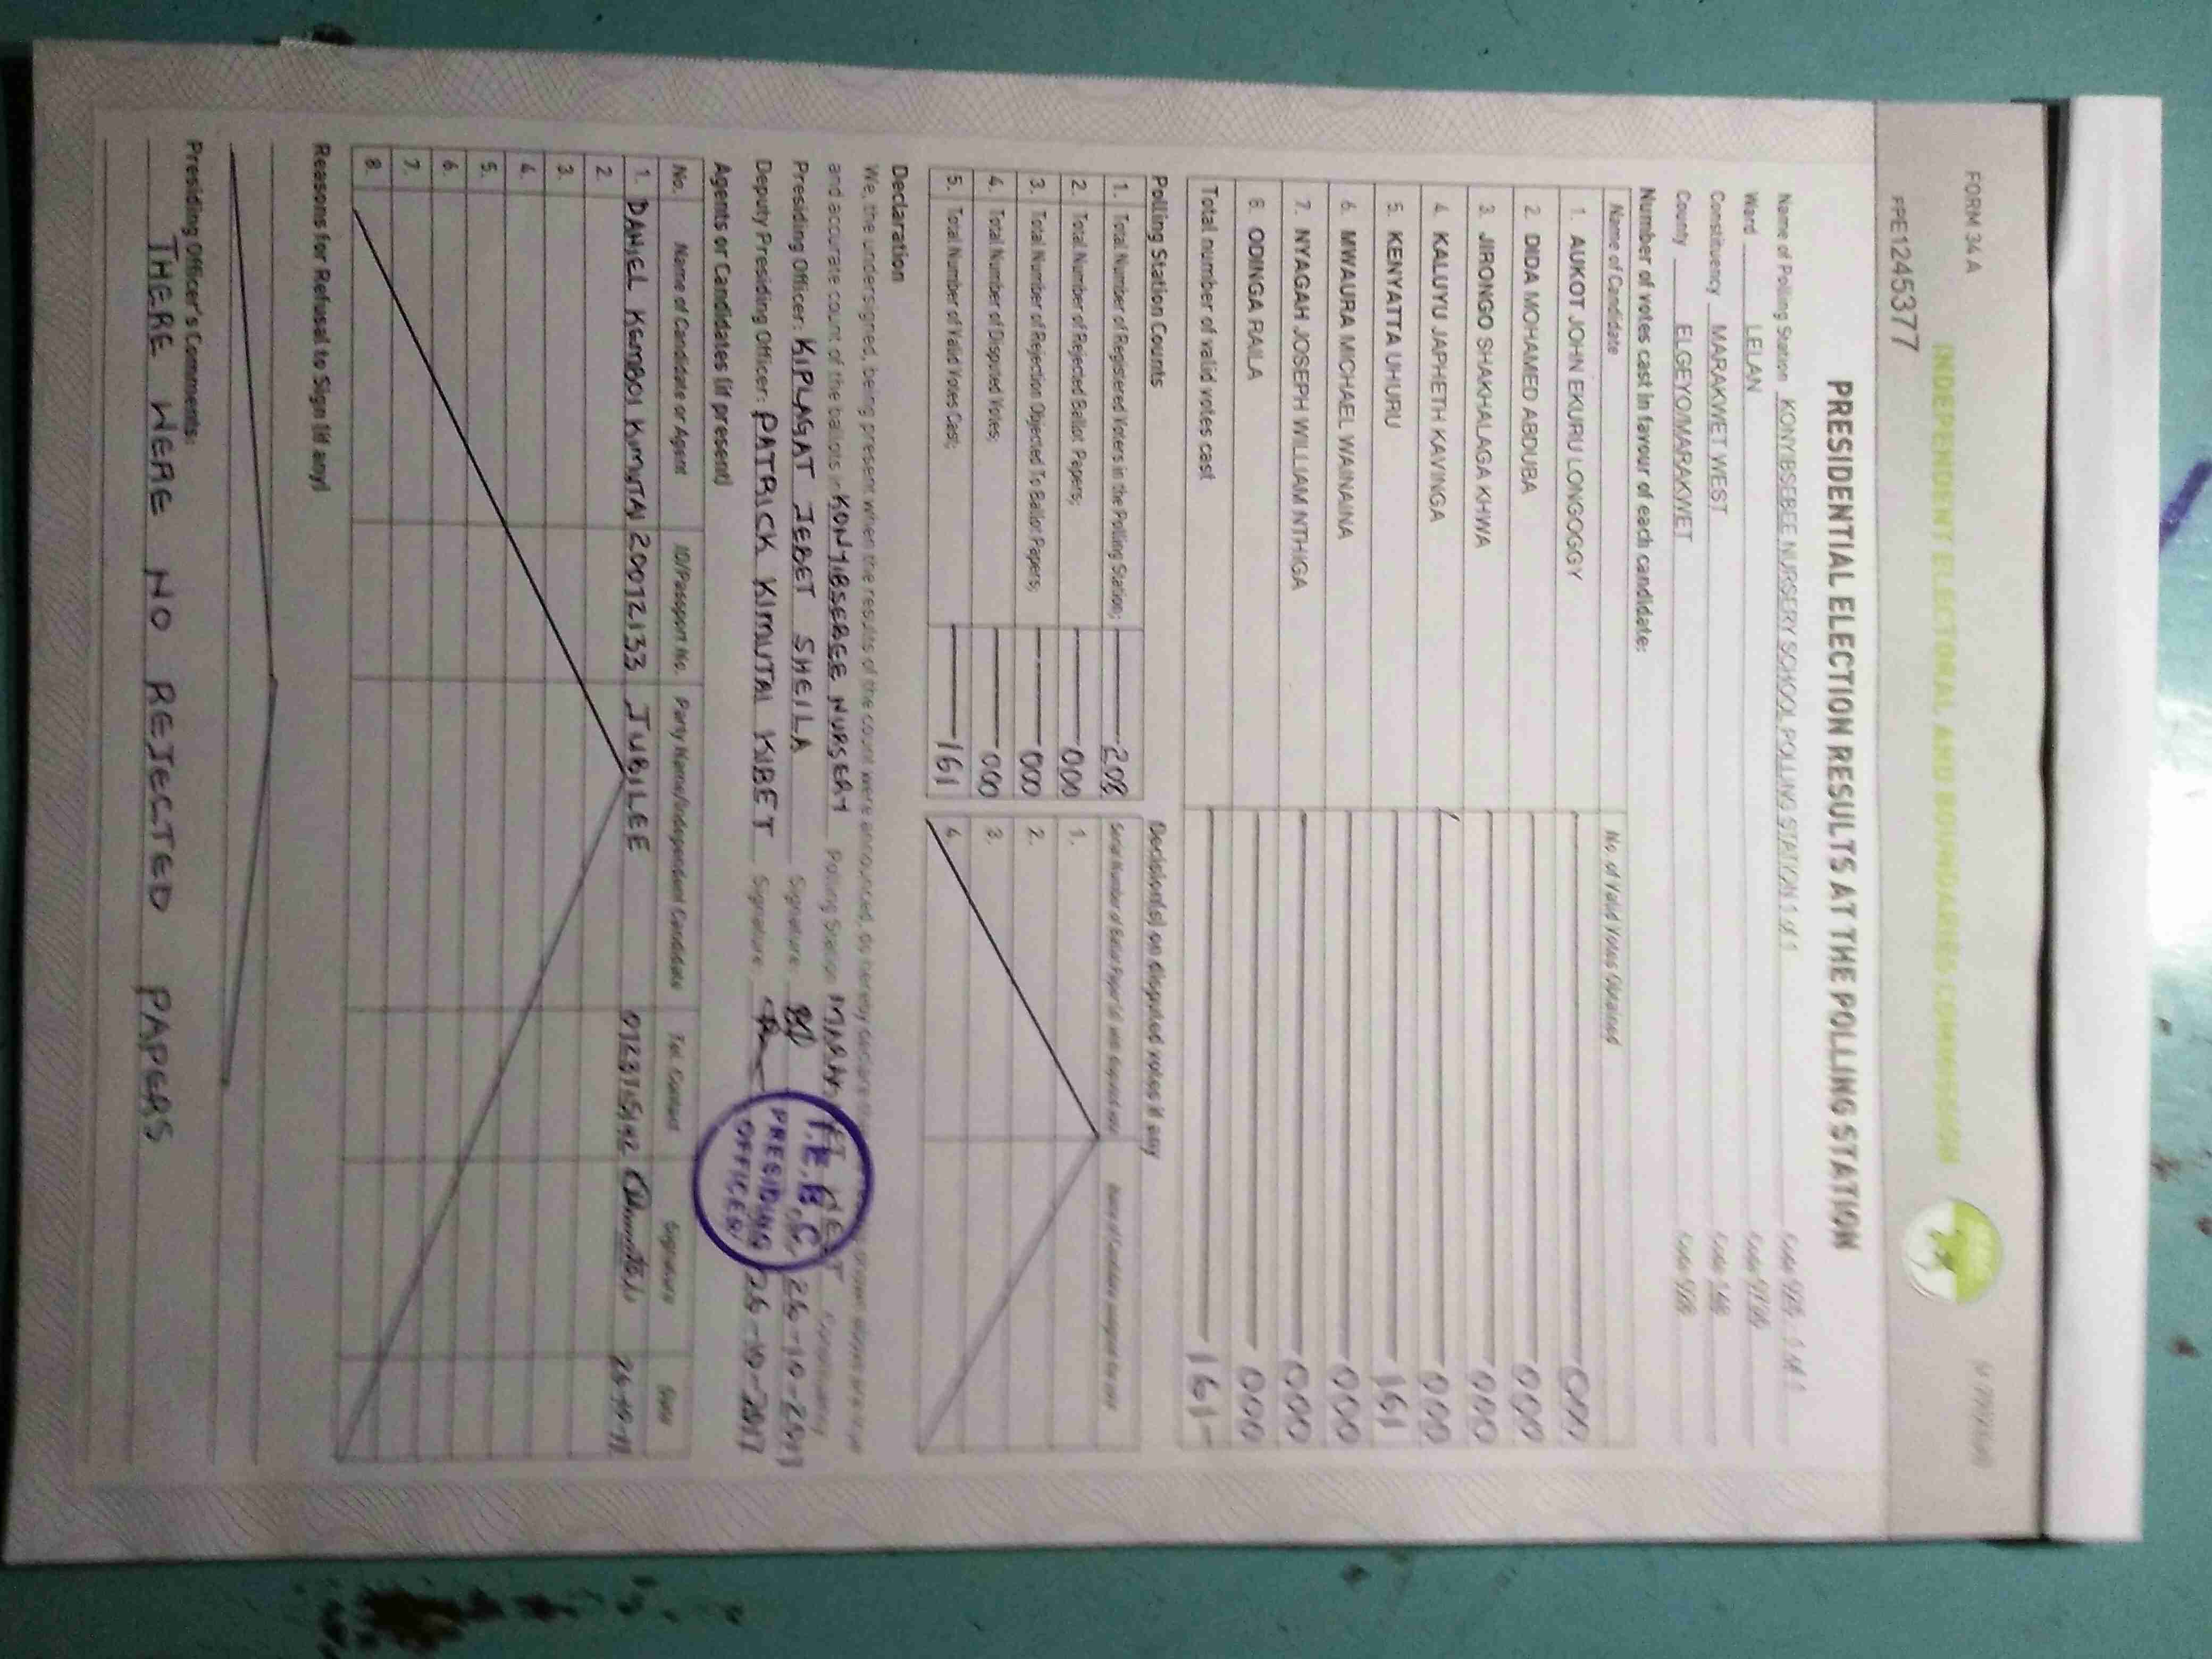 FORM 34 A
INDEPENDENT ELECTORAL AND BOUNDARIES COMMISSION
PPE1245377
PRESIDENTIAL ELECTION RESULTS AT THE POLLING STATION
Name of Polling Station KONYIBSEBEE NURSERY SCHOOL POLLING STATION 1 of 1
Ward LELAN
Constituency MARAKWET WEST
County ELGEYO/MARAKWET
Number of votes cast in favour of each candidate:
Name of Candidate No. of Valid Votes Obtained
1. AUKOT JOHN EKURU LONGOGGY 000
2. DIDA MOHAMED ABDUBA 000
3. JIRONGO SHAKHALAGA KHWA 000
4. KALUYU JAPHETH KAVINGA 000
5. KENYATTA UHURU 161
6. MWAURA MICHAEL WAINAINA 000
7. NYAGAH JOSEPH WILLIAM NTHIGA 000
8. ODINGA RAILA 000
Total number of valid votes cast 161
Polling Station Counts
1. Total Number of Registered Voters in the Polling Station; 208
2. Total Number of Rejected Ballot Papers; 000
3. Total Number of Rejection Objected To Ballot Papers; 000
4. Total Number of Disputed Votes; 000
5. Total Number of Valid Votes Cast; 161
Decision(s) on disputed votes if any
1.
2.
3.
4.
Declaration
We, the undersigned, being present when the results of the count were announced, do hereby declare
and accurate count of the ballots in KONYIBSERGE NURSERY Polling Station
Presiding Officer: KIPLAGAT JEBET SHEILA Signature 26-10-2017
Deputy Presiding Officer: PATRICK KIMUTAI KIBET Signature 26-10-2017
I.E.B.C
PRESIDING
OFFICER
Agents or Candidates (if present)
No. Name of Candidate or Agent ID/Passport No. Party Name/Independent Candidate Tel. Contact Signature Date
1. DANIEL KEMBOI KIMUTAI 20072133 JUBILEE 26-10-17
2
3.
4.
5.
6.
7.
8.
Reasons for Refusal to Sign (if any)
Presiding Officer's Comments:
THERE WERE NO REJECTED PAPERS